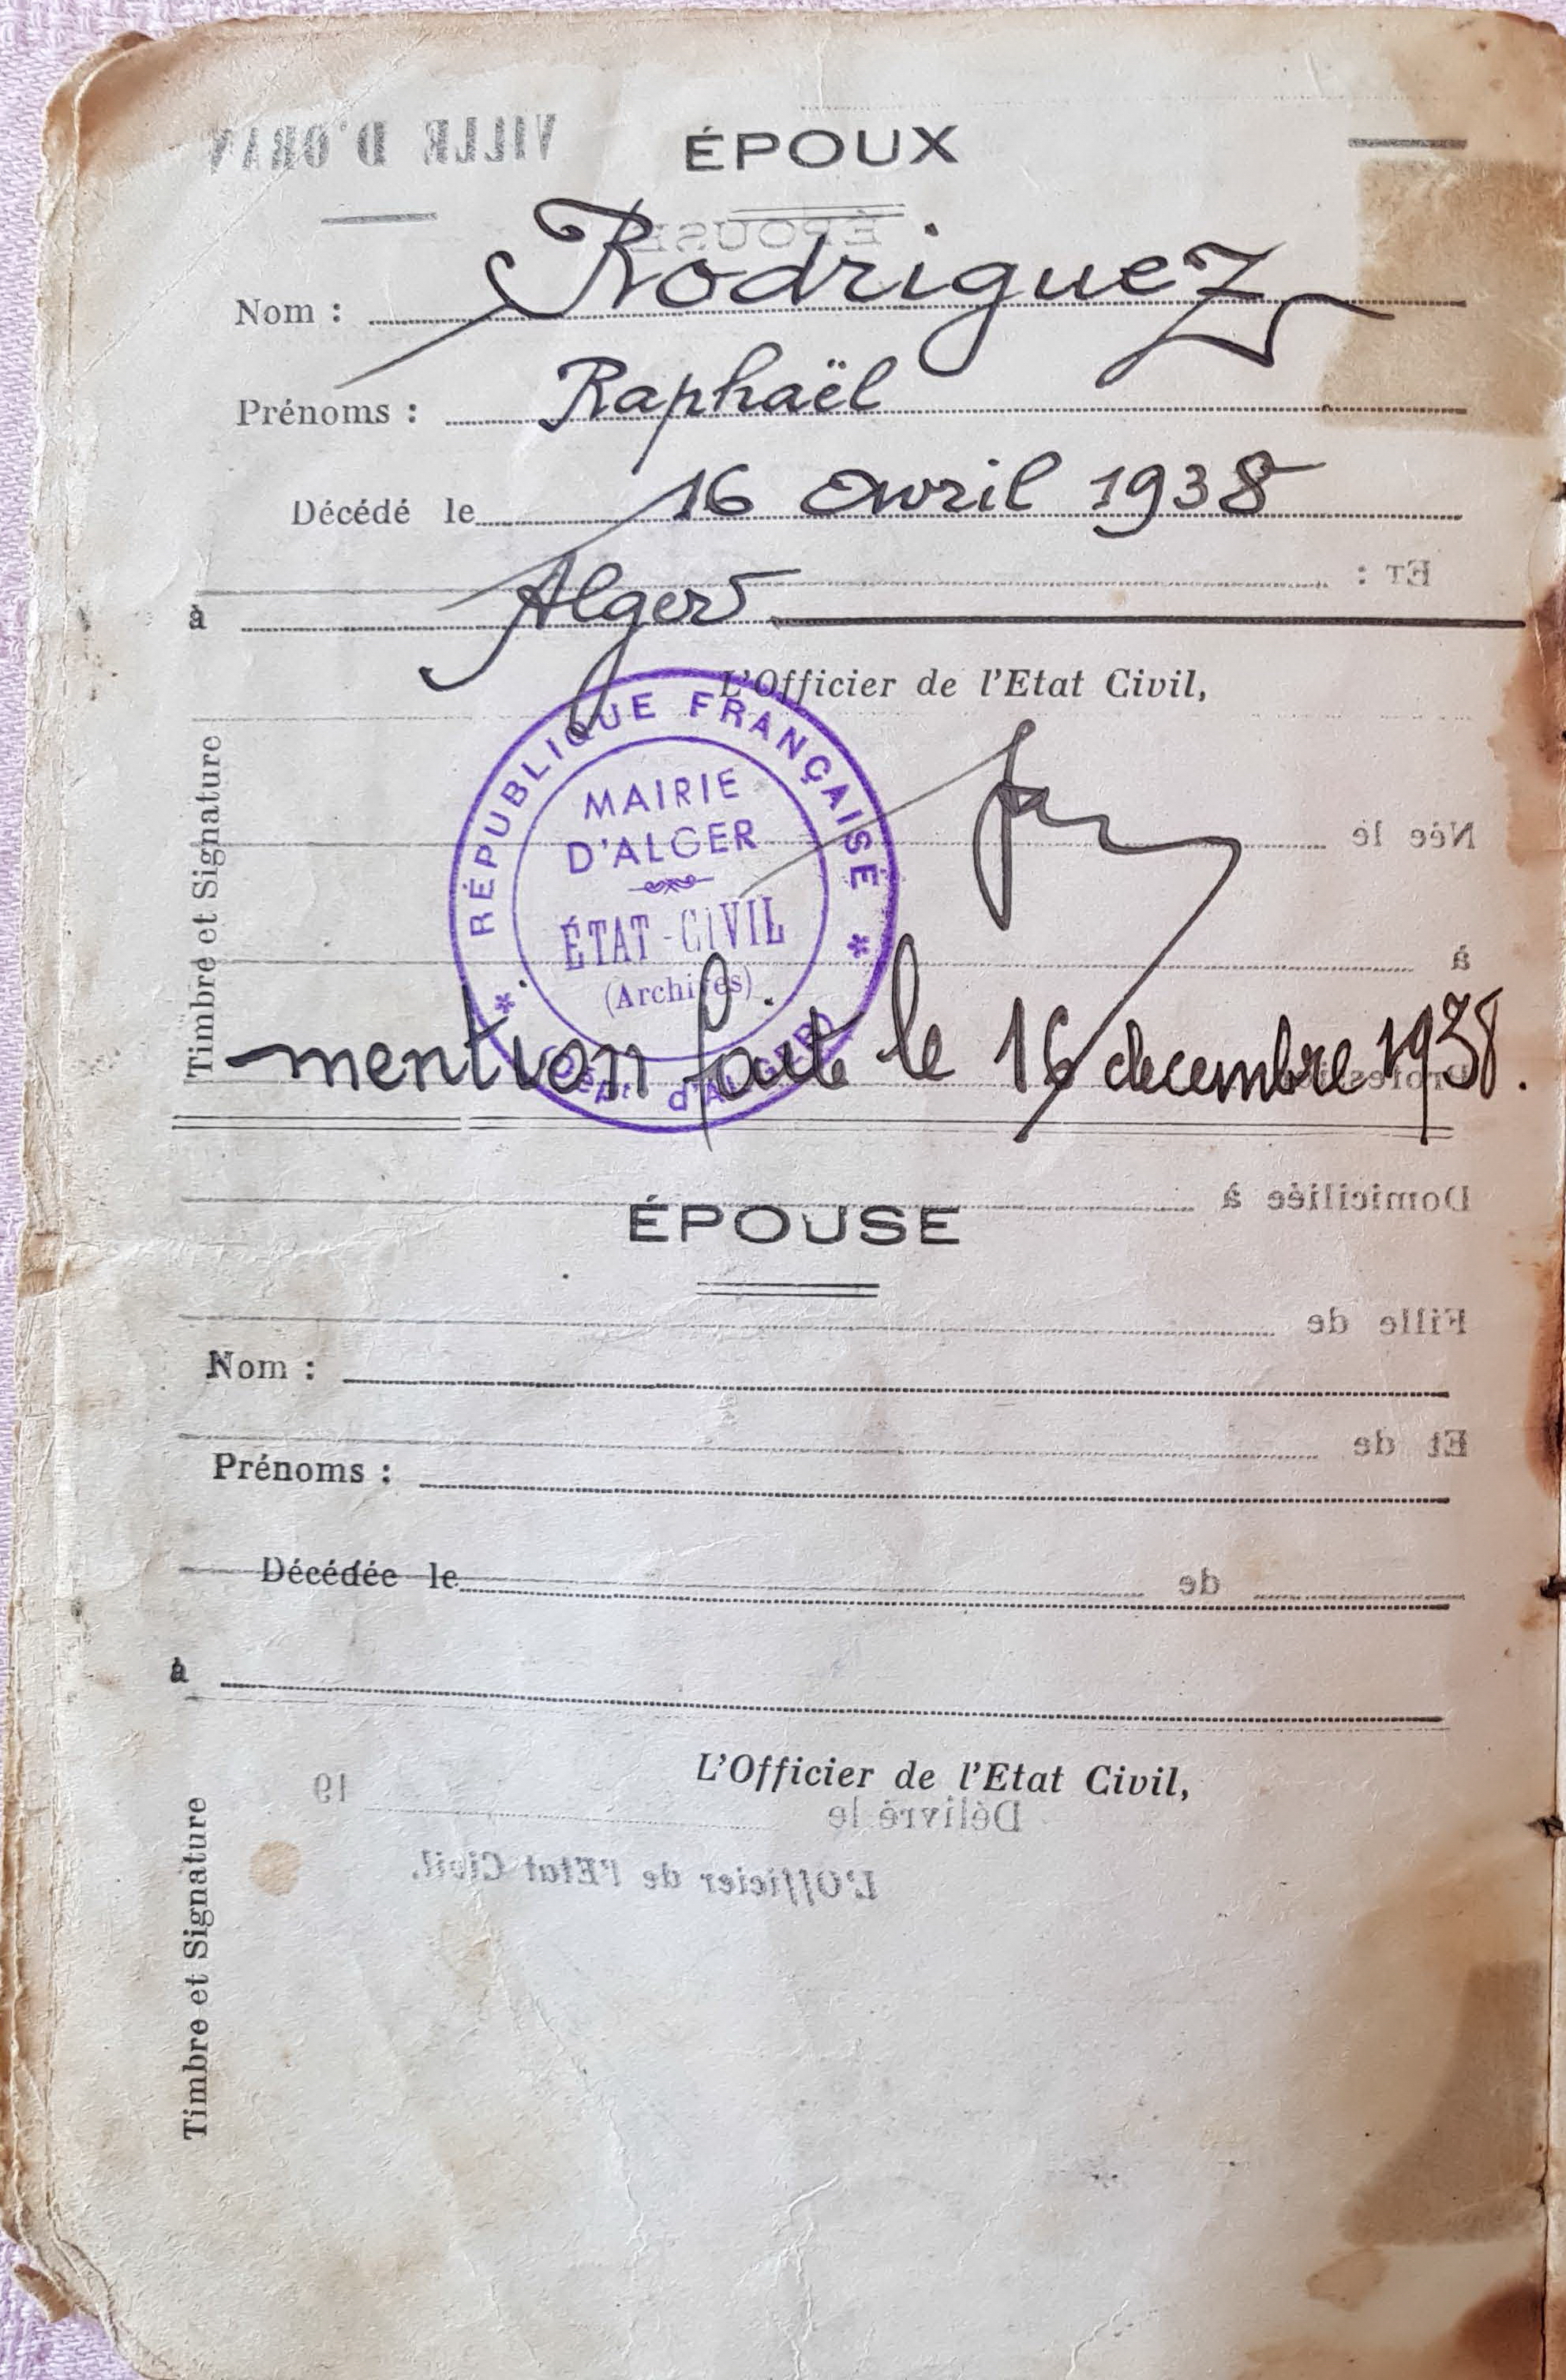 ÉPOUX
Nom : Rodriguez
Prénoms : Raphaël
Décédé le 16 avril 1938
à Alger
L'Officier de l'Etat Civil,
Timbre et Signature
RÉPUBLIQUE FRANÇAISE
MAIRIE
D'ALGER
ÉTAT-CIVIL
(Archives)
Dépt d'ALGER
mention faite le 16 decembre 1938.
ÉPOUSE
Nom :
Prénoms :
Décédée le
à
L'Officier de l'Etat Civil,
Timbre et Signature
VILLE D'ORAN
ÉPOUSE
ET :
Née le
à
Domiciliée à
Fille de
Et de
de
Délivré le 19
L'Officier de l'Etat Civil.